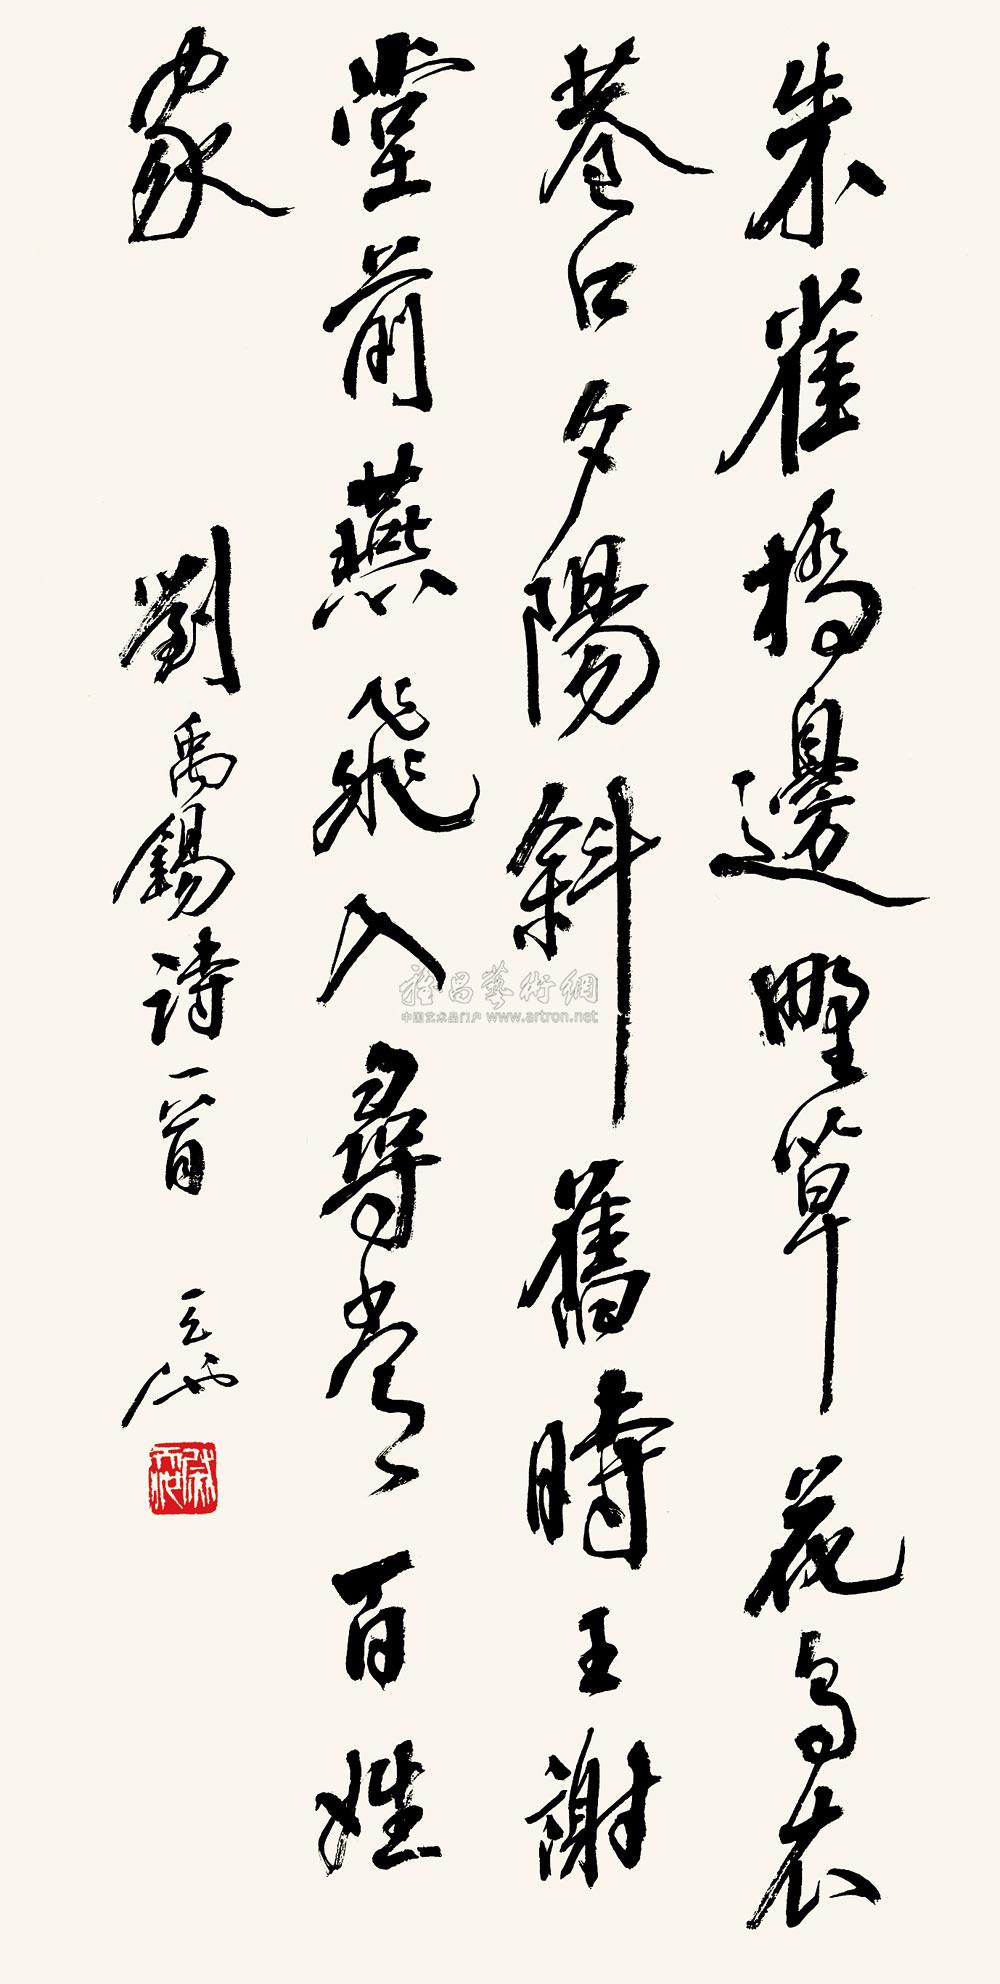 朱雀橋邊野草花烏衣
巷口夕陽斜舊時王謝
堂前燕飛入尋常百姓
家
劉禹錫詩一首
雅昌藝術網
中国艺术品门户 www.artron.net